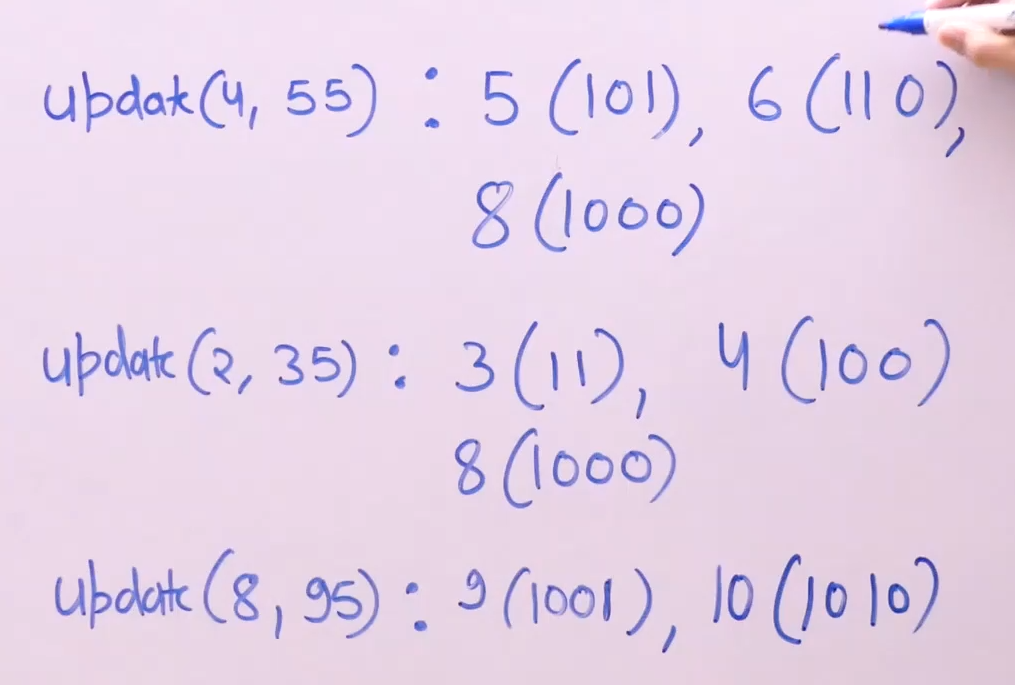 updat(4, 55) : 5 (101), 6 (110),
8 (1000)
update (2, 35) : 3 (11), 4 (100)
8 (1000)
update (8, 95) : 9 (1001), 10 (1010)